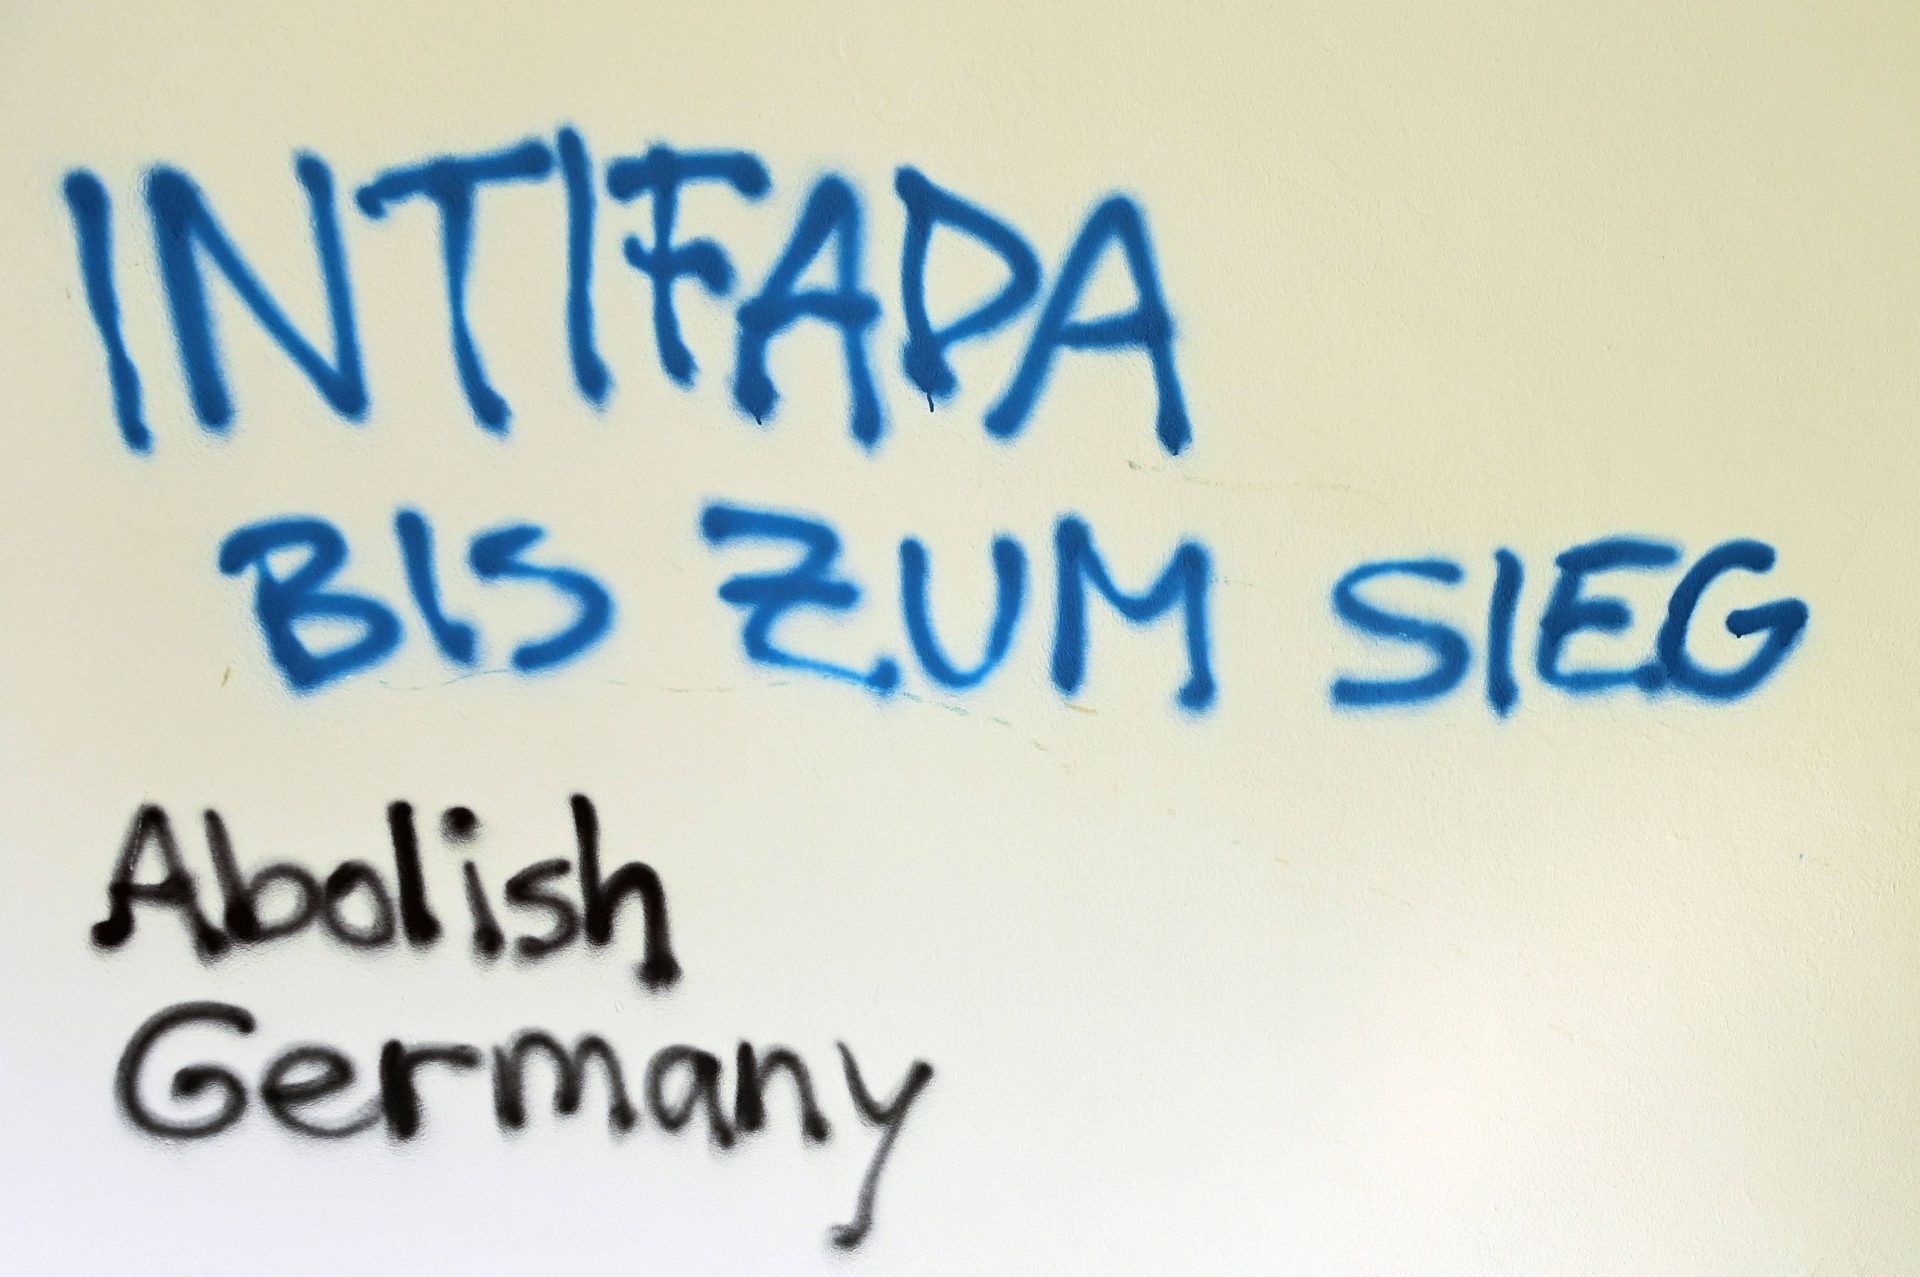 INTIFADA
BIS ZUM SIEG
Abolish
Germany